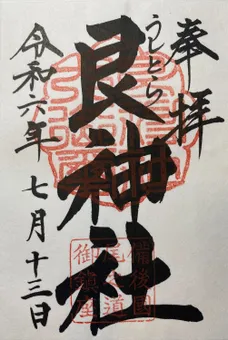 奉拝
うしとら
艮神社
令和六年 七月十三日
備後國
尾道
御鎮座